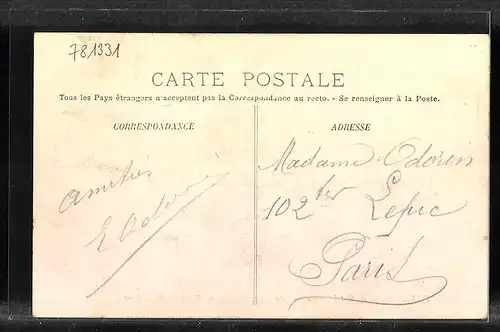 781331
CARTE POSTALE
Tous les Pays étrangers n'acceptent pas la Correspondance au recto. - Se renseigner à la Poste.
CORRESPONDANCE
ADRESSE
Madame Odorin
102 ter Lepic
Paris
Amitiés
E Odorin